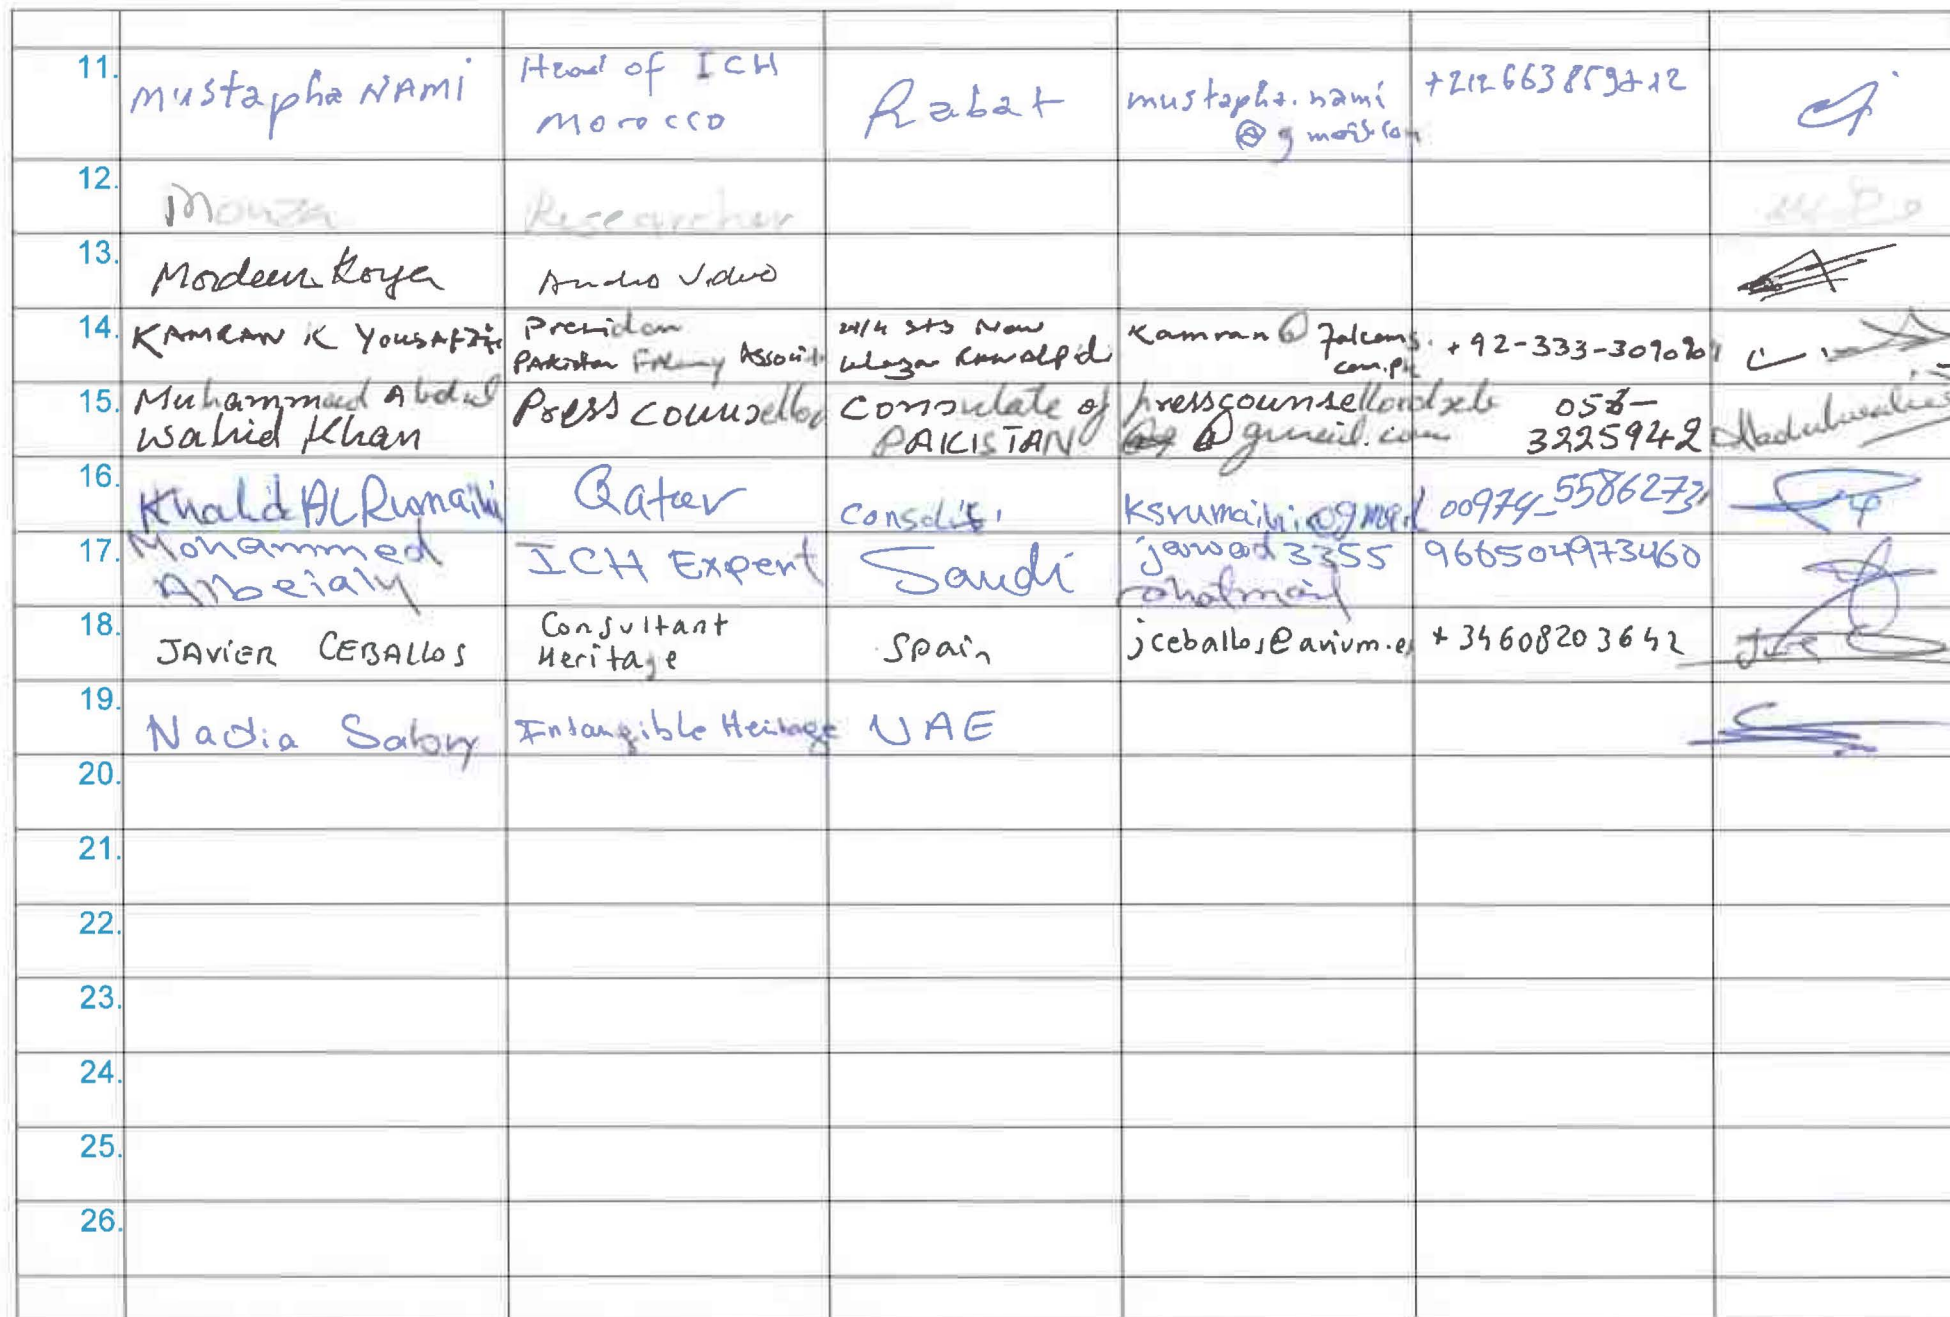 11.
Mustapha NAMI
Head of ICH
Morocco
Rabat
mustapha.nami
@gmail.com
12.
Mouza
Researcher
13.
Mordeen Koya
Audio Video
14.
KAMRAN K YOUSAFZAI
President
PAKISTAN Associ
New
Rawalpdi
Kamran@falcons.
com.pk
15.
Muhammad Abdul
Wahid Khan
Press Counsellor
Consulate of
PAKISTAN
@gmail.com
3225942
16.
Khalid AL Rumaihi
Qatar
ksrumaihi@gmail
00974-5586273
17.
Mohammed
Albeialy
ICH Expert
Saudi
jawad3355
966504973460
18.
JAVIER CEBALLOS
Consultant
Heritage
Spain
jceballos@avium.es
+34608203642
19.
Nadia Sabry
Intangible Heritage
UAE
20.
21.
22.
23.
24.
25.
26.